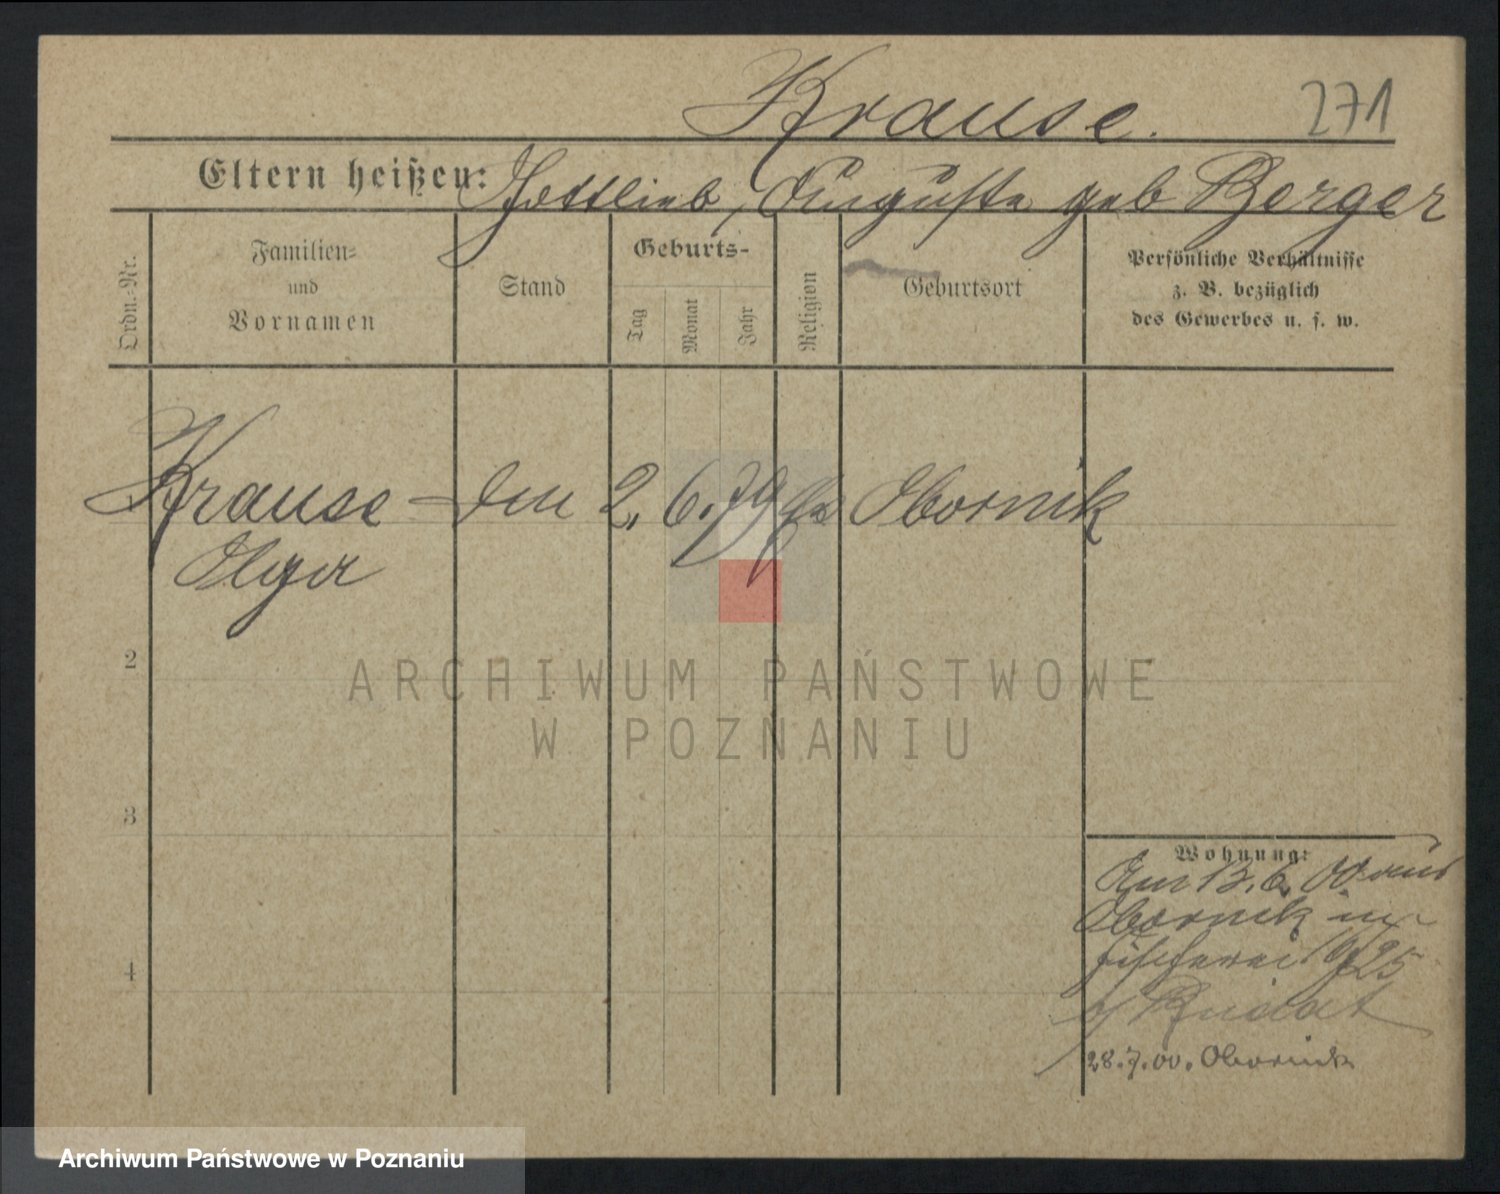 Krause. 271
Eltern heißen: Gottlieb, Auguste geb Berger
Ordn.-Nr.
Familien-
und
Vornamen
Stand
Geburts-
Tag
Monat
Jahr
Religion
Geburtsort
Persönliche Verhältnisse
z. B. bezüglich
des Gewerbes u. s. w.
Krause den 2. 6. 79 Obornik
Olga
2
3
4
ARCHIWUM PAŃSTWOWE
W POZNANIU
Wohnung:
Am 13. 6. 00 aus
Obornik in
Fischerei 25
28. 7. 00. Obornik
Archiwum Państwowe w Poznaniu